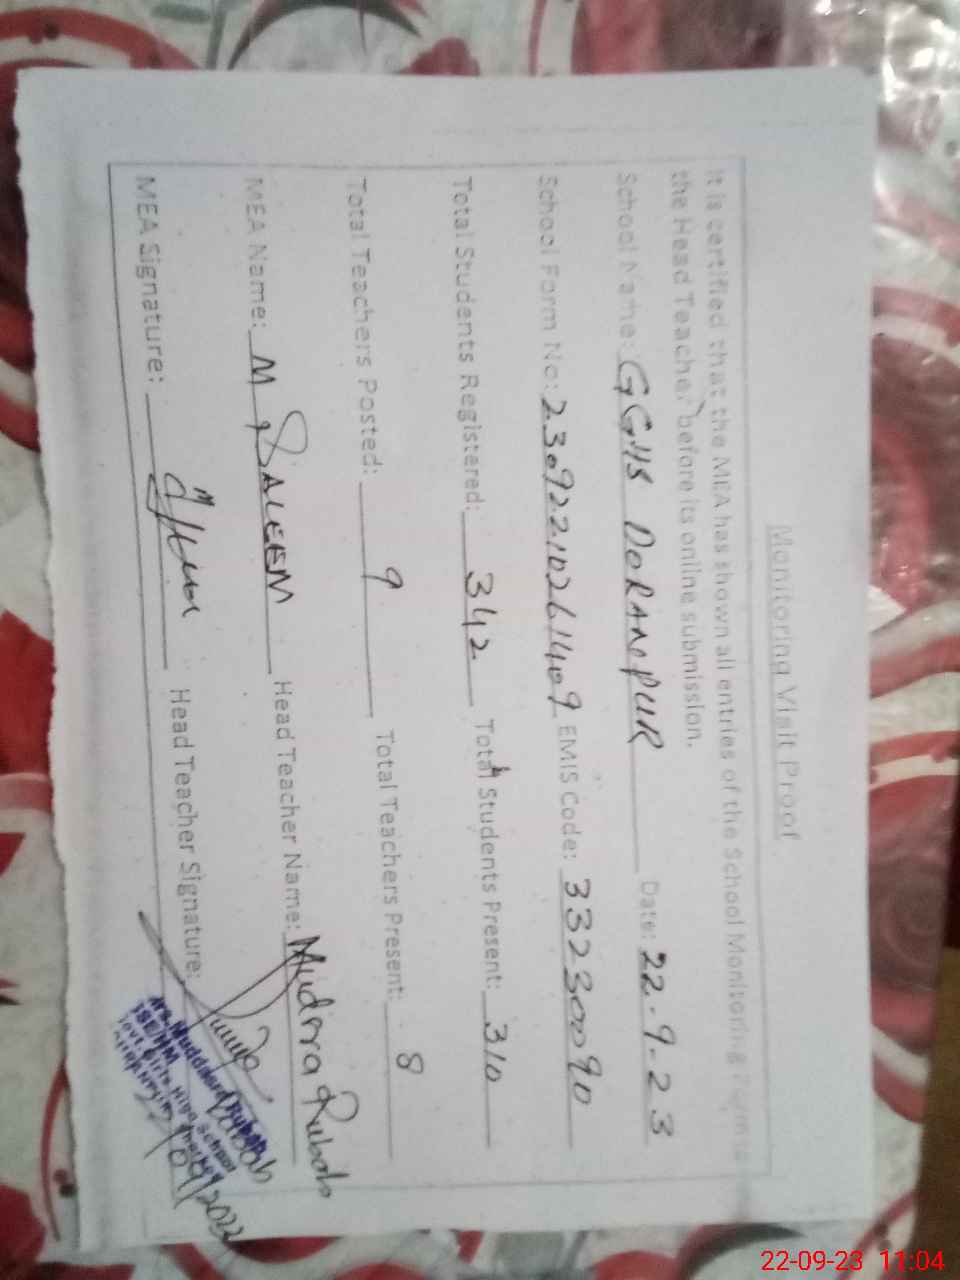 Monitoring Visit Proof
It is certified that the MEA has shown all entries of the School Monitoring Form to
the Head Teacher before its online submission.
School Name: GGHS DORAMPUR Date: 22-9-23
School Form No: 23092210261409 EMIS Code: 33230090
Total Students Registered: 342 Total Students Present: 310
Total Teachers Posted: 9 Total Teachers Present: 8
MEA Name: M SALEEM Head Teacher Name: Mudrra Rubab
MEA Signature: Head Teacher Signature:
22-09-23 11:04